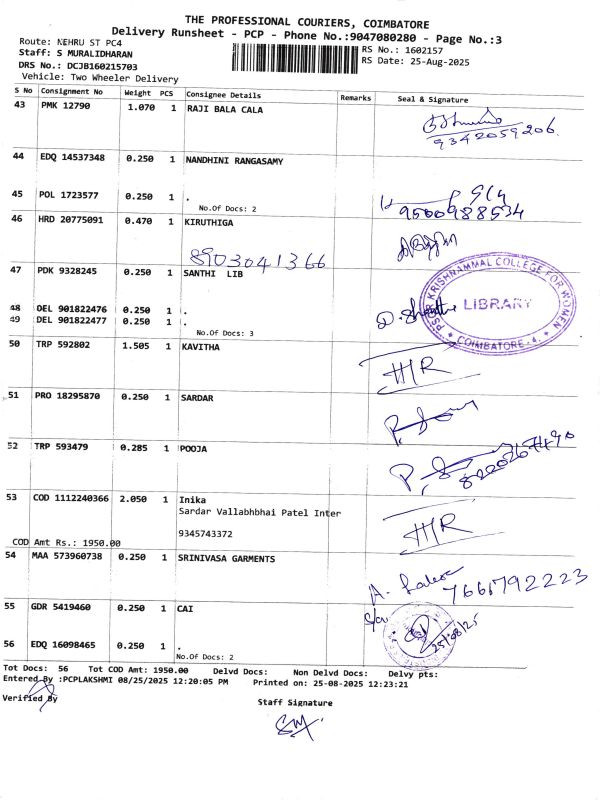 THE PROFESSIONAL COURIERS, COIMBATORE
Delivery Runsheet - PCP - Phone No.:9047080280 - Page No.:3
Route: NEHRU ST PC4
Staff: S MURALIDHARAN
DRS No.: DCJB160215703
Vehicle: Two Wheeler Delivery
RS No.: 1602157
RS Date: 25-Aug-2025
S No Consignment No Weight PCS Consignee Details Remarks Seal & Signature
43 PMK 12790 1.070 1 RAJI BALA CALA
9342059206.
44 EDQ 14537348 0.250 1 NANDHINI RANGASAMY
45 POL 1723577 0.250 1 .
No.Of Docs: 2
9500988534
46 HRD 20775091 0.470 1 KIRUTHIGA
8903041366
47 PDK 9328245 0.250 1 SANTHI LIB
PSGR KRISHNAMMAL COLLEGE FOR WOMEN
LIBRARY
COIMBATORE-4.
48 OEL 901822476 0.250 1 .
49 DEL 901822477 0.250 1 .
No.Of Docs: 3
50 TRP 592802 1.505 1 KAVITHA
51 PRO 18295870 0.250 1 SARDAR
52 TRP 593479 0.285 1 POOJA
53 COD 1112240366 2.050 1 Inika
Sardar Vallabhbhai Patel Inter
9345743372
COD Amt Rs.: 1950.00
54 MAA 573960738 0.250 1 SRINIVASA GARMENTS
7661792223
55 GDR 5419460 0.250 1 CAI
25/08/25
56 EDQ 16098465 0.250 1 .
No.Of Docs: 2
Tot Docs: 56 Tot COD Amt: 1950.00 Delvd Docs: Non Delvd Docs: Delvy pts:
Entered By :PCPLAKSHMI 08/25/2025 12:20:05 PM Printed on: 25-08-2025 12:23:21
Verified By
Staff Signature